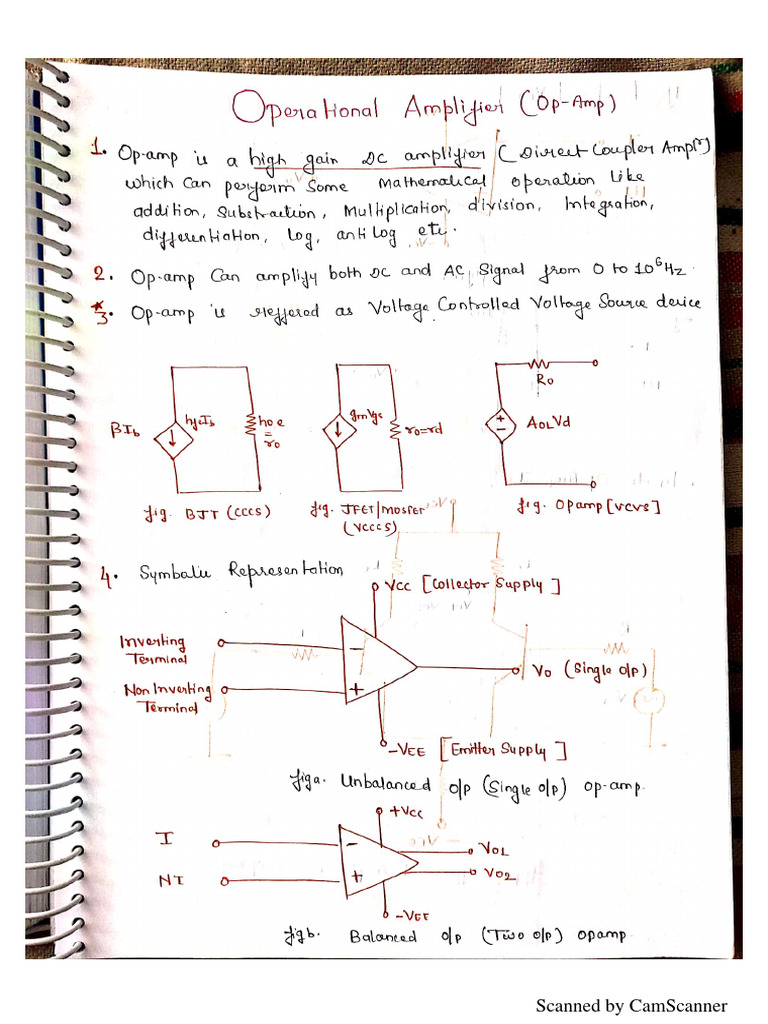 Operational Amplifier (Op-Amp)
1. Op-amp is a high gain DC amplifier (Direct Coupler Ampl^r)
which Can perform Some Mathematical operation like
addition, Substraction, Multiplication, division, Integration,
differentiation, Log, antilog etc.
2. Op-amp Can amplify both DC and AC Signal from 0 to 10^6 Hz.
* 3. Op-amp is reffered as Voltage Controlled Voltage Source device
βIb
hfeIb
hoe
=
ro
gmVgs
ro=rd
Ro
AOLVd
fig. BJT (CCCS)
fig. JFET/MOSFET
(VCCCS)
fig. Opamp [VCVS]
4. Symbolic Representation
VCC [Collector Supply]
Inverting
Terminal
Non Inverting
Terminal
−
+
Vo (Single o/p)
-VEE [Emitter Supply]
fig a. Unbalanced o/p (Single o/p) op-amp.
+VCC
I
NI
−
+
VO1
VO2
-VEE
fig b. Balanced o/p (Two o/p) opamp.
Scanned by CamScanner